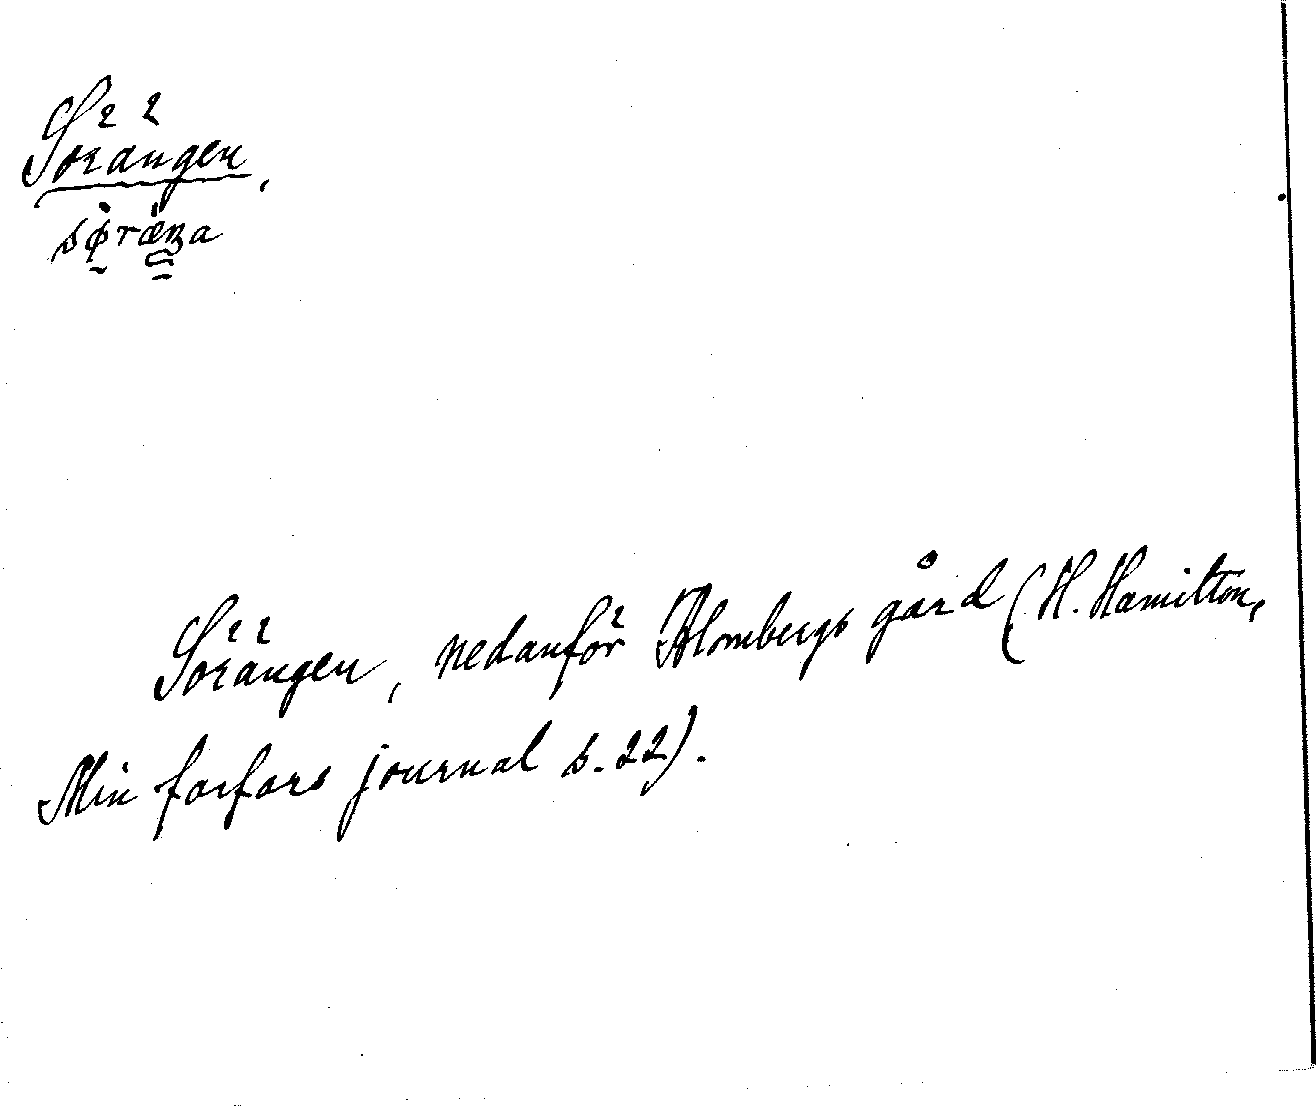 Sörängen,
Sörängen, nedanför Blombergs gård (H. Hamilton,
Min farfars journal s. 22).